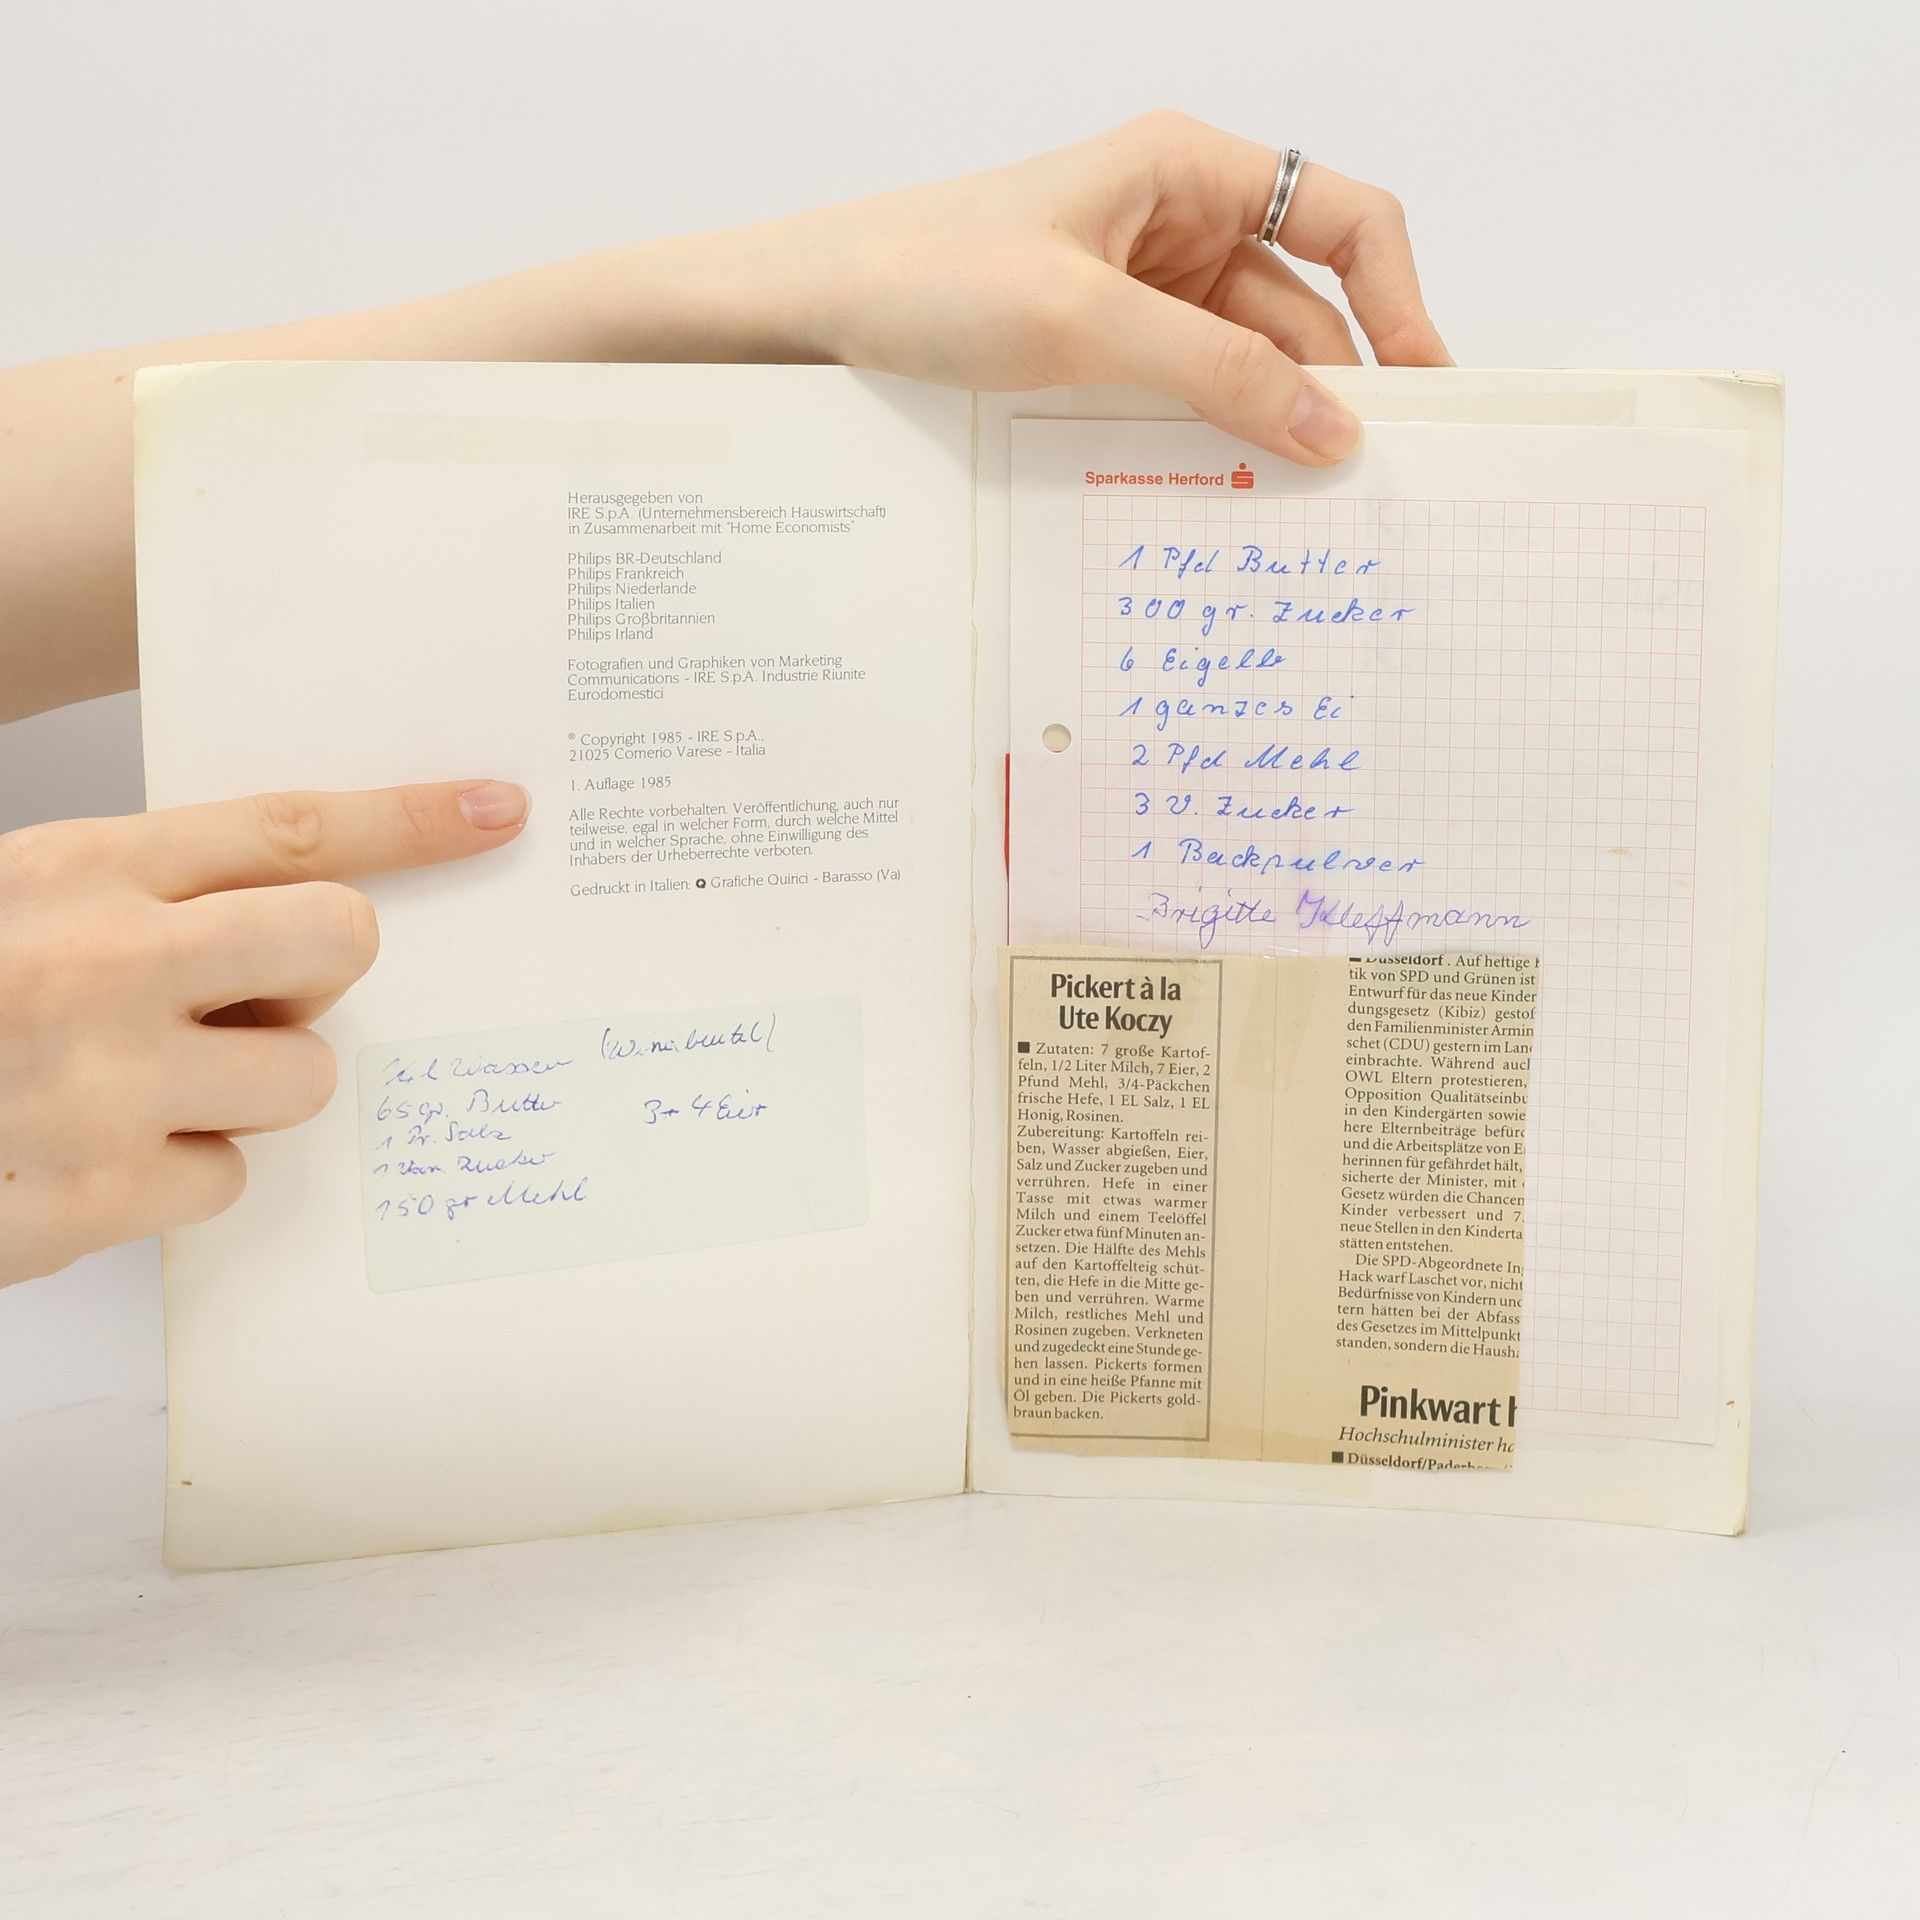 Herausgegeben von
IRE S.p.A. (Unternehmensbereich Hauswirtschaft)
in Zusammenarbeit mit "Home Economists"
Philips BR-Deutschland
Philips Frankreich
Philips Niederlande
Philips Italien
Philips Großbritannien
Philips Irland
Fotografien und Graphiken von Marketing
Communications - IRE S.p.A. Industrie Riunite
Eurodomestici
® Copyright 1985 - IRE S.p.A.,
21025 Comerio Varese - Italia
1. Auflage 1985
Alle Rechte vorbehalten. Veröffentlichung, auch nur
teilweise, egal in welcher Form, durch welche Mittel
und in welcher Sprache, ohne Einwilligung des
Inhabers der Urheberrechte verboten.
Gedruckt in Italien: Grafiche Quirici - Barasso (Va)
(Windbeutel)
1/4 l Wasser
65 gr. Butter
3+ 4 Eier
1 Pr. Salz
1 Van. Zucker
150 gr Mehl
Sparkasse Herford
1 Pfd Butter
300 gr. Zucker
6 Eigelb
1 ganzes Ei
2 Pfd Mehl
3 V. Zucker
1 Backpulver
Brigitte Kleffmann
Pickert à la
Ute Koczy
Zutaten: 7 große Kartof-
feln, 1/2 Liter Milch, 7 Eier, 2
Pfund Mehl, 3/4-Päckchen
frische Hefe, 1 EL Salz, 1 EL
Honig, Rosinen.
Zubereitung: Kartoffeln rei-
ben, Wasser abgießen, Eier,
Salz und Zucker zugeben und
verrühren. Hefe in einer
Tasse mit etwas warmer
Milch und einem Teelöffel
Zucker etwa fünf Minuten an-
setzen. Die Hälfte des Mehls
auf den Kartoffelteig schüt-
ten, die Hefe in die Mitte ge-
ben und verrühren. Warme
Milch, restliches Mehl und
Rosinen zugeben. Verkneten
und zugedeckt eine Stunde ge-
hen lassen. Pickerts formen
und in eine heiße Pfanne mit
Öl geben. Die Pickerts gold-
braun backen.
Düsseldorf. Auf heftige
tik von SPD und Grünen ist
Entwurf für das neue Kinder
dungsgesetz (Kibiz) gestoß
den Familienminister Armin
schet (CDU) gestern im Lan
einbrachte. Während auch
OWL Eltern protestieren,
Opposition Qualitätseinbu
in den Kindergärten sowie
here Elternbeiträge befürc
und die Arbeitsplätze von E
herinnen für gefährdet hält,
sicherte der Minister, mit
Gesetz würden die Chancen
Kinder verbessert und 7.
neue Stellen in den Kinderta
stätten entstehen.
Die SPD-Abgeordnete In
Hack warf Laschet vor, nicht
Bedürfnisse von Kindern und
tern hätten bei der Abfass
des Gesetzes im Mittelpunkt
standen, sondern die Hausha
Pinkwart
Hochschulminister ha
Düsseldorf/Paderb